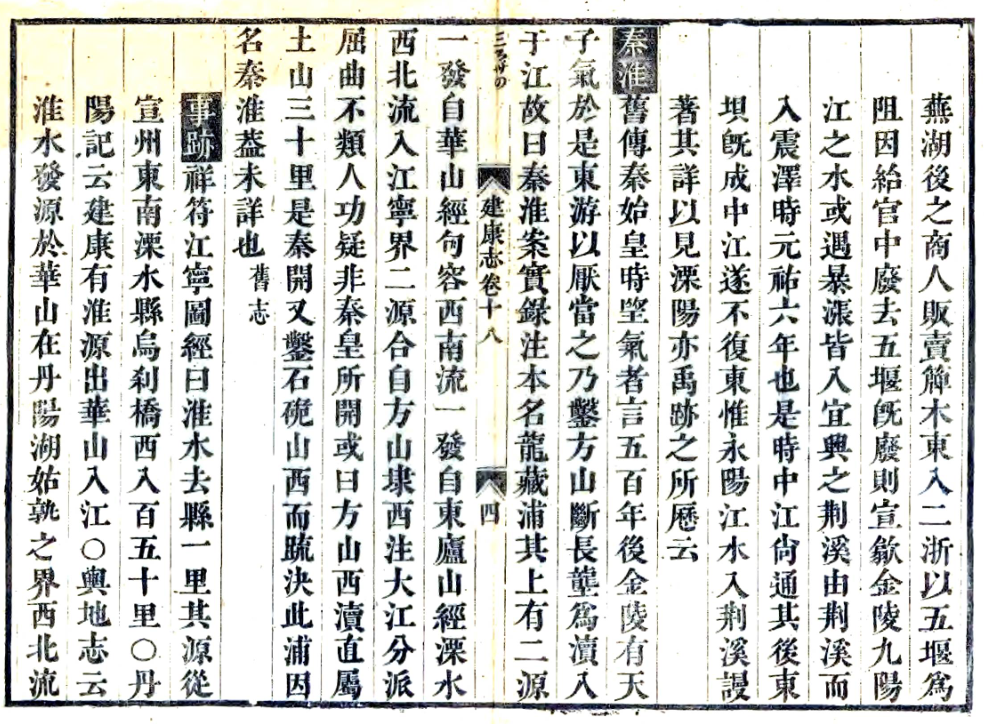 蕪湖後之商人販賣簰木東入二浙以五堰爲
阻因給官中廢去五堰旣廢則宣歙金陵九陽
江之水或遇暴漲皆入宜興之荆溪由荆溪而
入震澤時元祐六年也是時中江尙通其後東
垻旣成中江遂不復東惟永陽江水入荆溪謾
著其詳以見溧陽亦禹跡之所歷云
秦淮舊傳秦始皇時望氣者言五百年後金陵有天
子氣於是東游以厭當之乃鑿方山斷長壟爲瀆入
于江故曰秦淮案實錄注本名龍藏浦其上有二源
建康志卷十八
四
一發自華山經句容西南流一發自東廬山經溧水
西北流入江寧界二源合自方山埭西注大江分派
屈曲不類人功疑非秦皇所開或曰方山西瀆直屬
土山三十里是秦開又鑿石硊山西而䟽決此浦因
名秦淮蓋未詳也舊志
事跡祥符江寧圖經曰淮水去縣一里其源從
宣州東南溧水縣烏刹橋西入百五十里○丹
陽記云建康有淮源出華山入江○輿地志云
淮水發源於華山在丹陽湖姑孰之界西北流